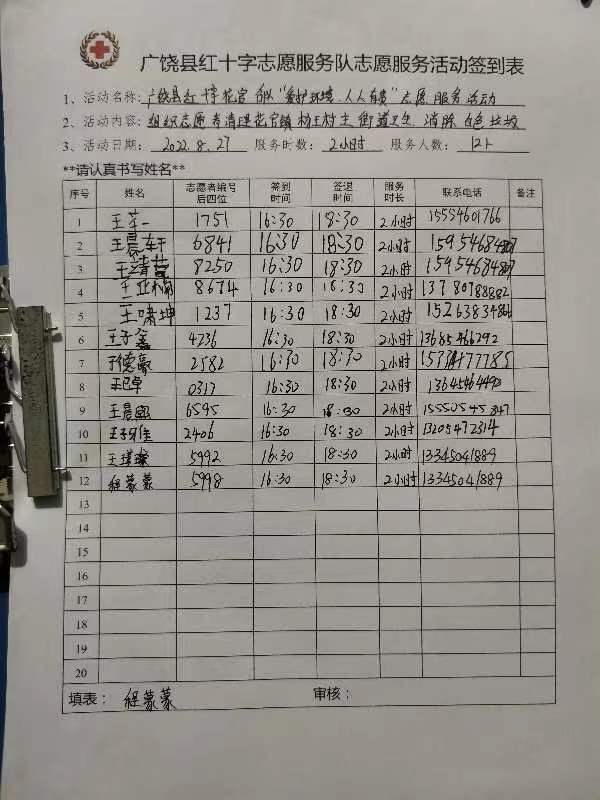 广饶县红十字志愿服务队志愿服务活动签到表
1、活动名称:广饶县红十字花官 "爱护环境、人人有责"志愿服务活动
2、活动内容:组织志愿者清理花官镇 杨王村主街道卫生 清除白色垃圾
3、活动日期: 2022.8.27 服务时数: 2小时 服务人数: 12人
**请认真书写姓名**
序号 姓名 志愿者编号后四位 签到时间 签退时间 服务时长 联系电话 备注
1 1751 16:30 18:30 2小时 15554601766
2 王晨轩 6841 16:30 18:30 2小时
3 王靖萱 8250 16:30 18:30 2小时
4 王亚楠 8674 16:30 18:30 2小时 13780788882
5 王啸坤 1237 16:30 18:30 2小时
6 王子鑫 4236 16:30 18:30 2小时 13685466292
7 于德豪 2582 16:30 18:30 2小时
8 0317 16:30 18:30 2小时 13645464490
9 6595 16:30 18:30 2小时
10 2406 16:30 18:30 2小时 13205472314
11 5992 16:30 18:30 2小时 13345041889
12 程蒙蒙 5998 16:30 18:30 2小时 13345041889
13
14
15
16
17
18
19
20
填表: 程蒙蒙 审核: